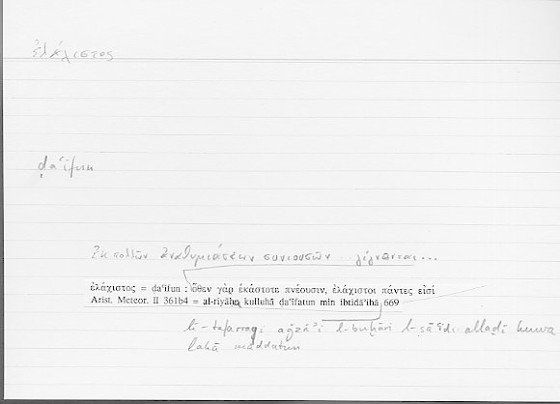 ἐλάχιστος
ḍaʿīfun
ἐκ πολλῶν ἀναθυμιάσεων συνιουσῶν γίγνεται...
ἐλάχιστος = da'ifun : ὅθεν γὰρ ἑκάστοτε πνέουσιν, ἐλάχιστοι πάντες εἰσί
Arist. Meteor. II 361b4 = al-riyāḥu kulluhā ḍa'īfatun min ibtidā'ihā 669
li-tafarruqi aǧzāʾi l-buḫāri l-ṣāʿidi allaḏī huwa
lahā māddatun